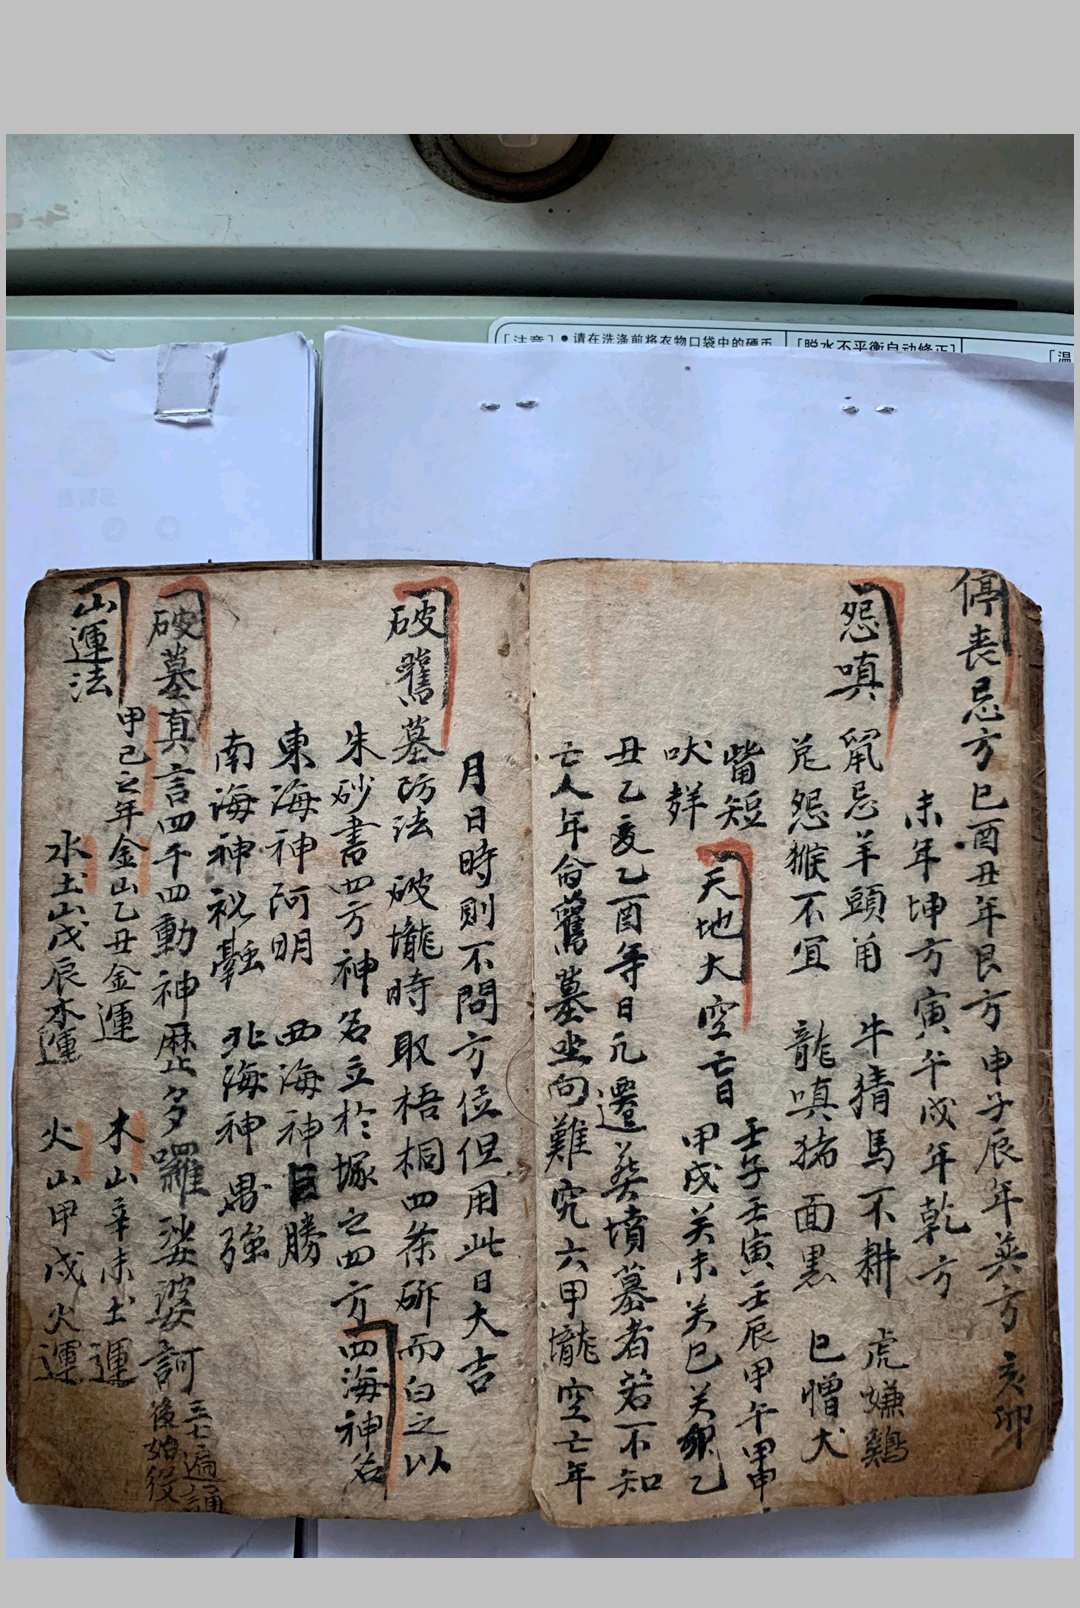 [注意] ● 请在洗涤前将衣物口袋中的硬币
[脱水不平衡自动修正]
[温
停丧忌方 巳酉丑年艮方 申子辰年巽方 亥卯
未年坤方 寅午戌年乾方
怨嗔 鼠忌羊頭角 牛猜馬不耕 虎嫌鷄
觜短 兎怨猴不宜 龍嗔猪面黒 巳憎犬
吠𫝀
天地大空亡日 壬子壬寅壬辰甲午甲申
甲戌关未关巳关卯乙
丑乙亥乙酉等日元遷葬墳墓者若不知
亡人年命舊墓坐向難究六甲壠空亡年
月日時則不問方位但用此日大吉
破舊墓防法 破壠時取梧桐四条斫而白之以
朱砂書四方神名立於塚之四方 四海神名
東海神阿明 西海神巨勝
南海神祝融 北海神禺强
破墓真言四千四動神歴多囉娑婆訶 三七遍誦
後始役
山運法 甲己之年金山乙丑金運 木山辛未土運
水土山戊辰木運 火山甲戌火運